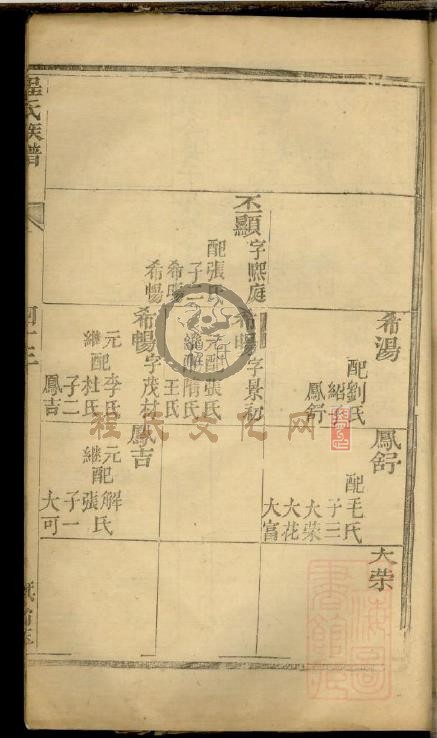 程氏族譜
丕顯
字熙庭
配張氏
子二
希暘
希暢
希湯
配劉氏
紹子
鳳舒
希暘
字景初
元配張氏
繼配隋氏
王氏
希暢
字茂材
元配李氏
繼配杜氏
子二
鳳吉
鳳舒
配毛氏
子三
大榮
大花
大富
鳳吉
元配解氏
繼配張氏
子一
大可
大榮
程氏文化网
上海圖書館藏